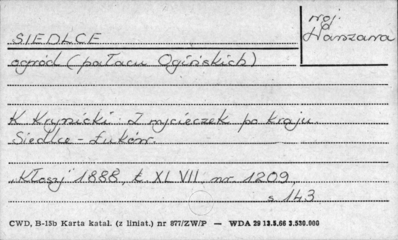 woj.
Warszawa
SIEDLCE
ogród (pałacu Ogińskich)
K Krynicki. Z wycieczek po kraju.
Siedlce - Łuków.
"Kłosy" 1888, t. XLVII, nr. 1209,
s 143
CWD, B-15b Karta katal. (z liniat.) nr 877/ZW/P — WDA 29 13.5.66 3.530.000